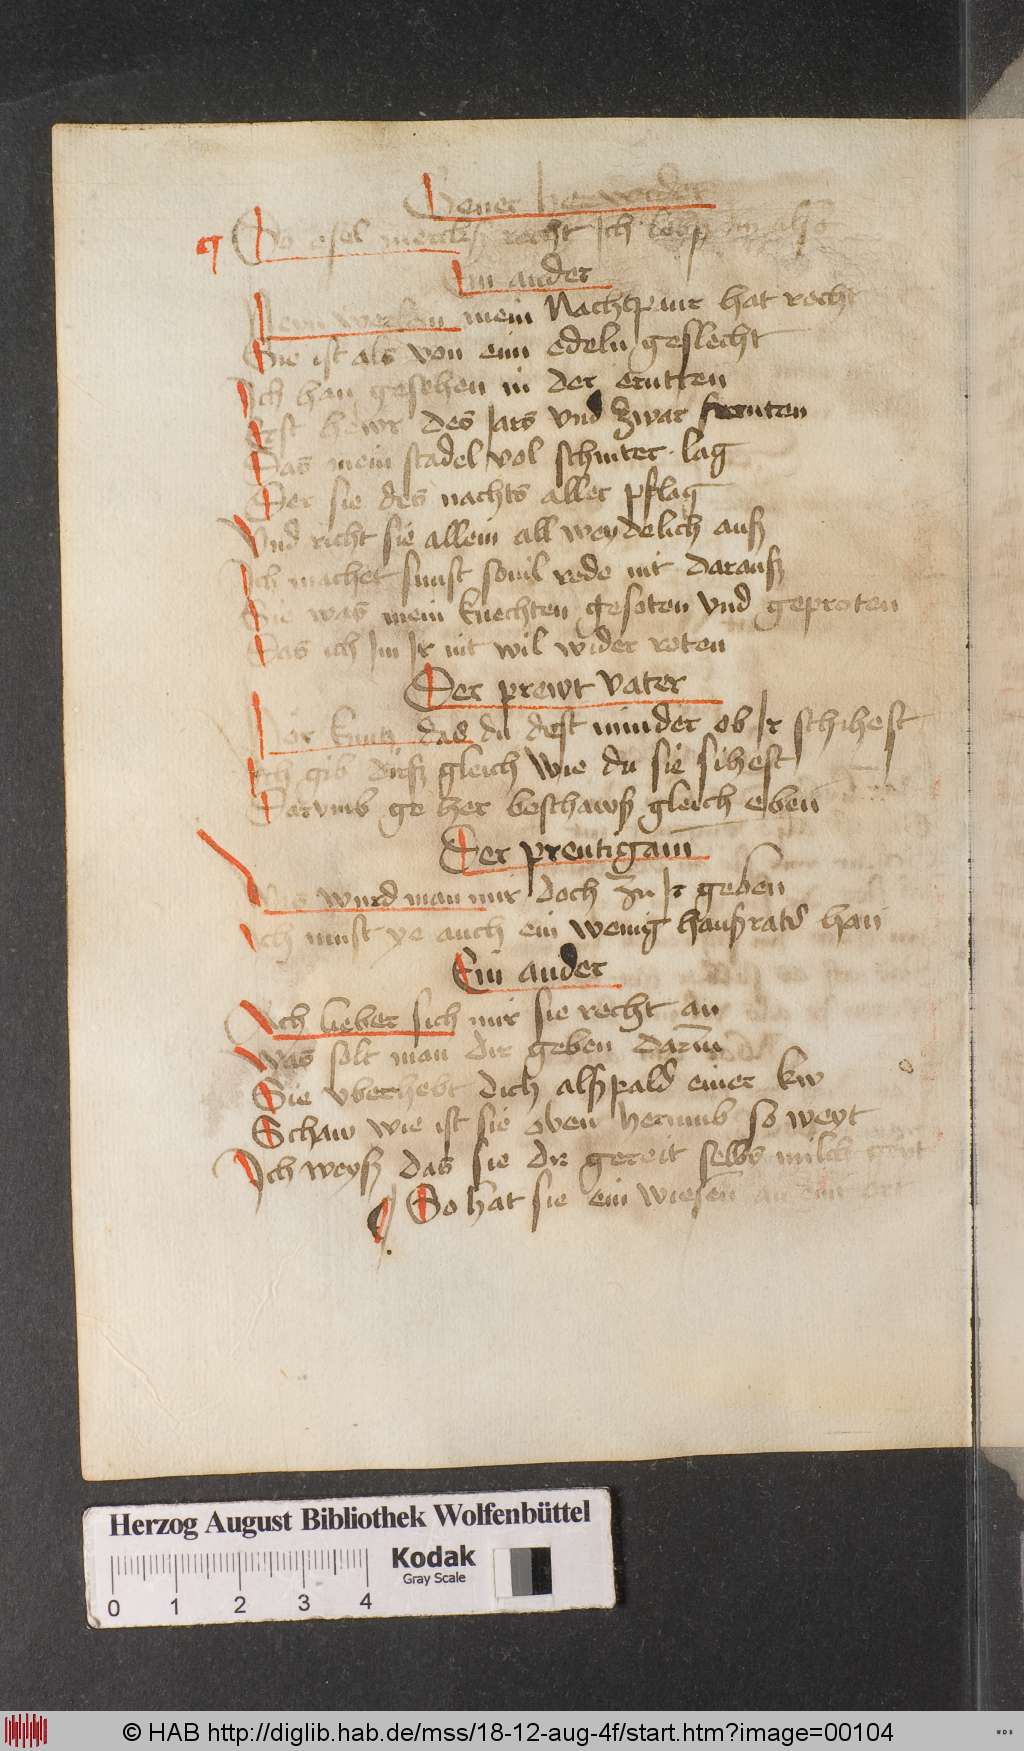 Jener her wider
Do esel merckß recht Ich leβ
Ein ander
mein Nachtpaur hat recht
Sie ist als von einn edeln geslecht
Ich han gesehen in der erntten
Erst hewr des Jars vnd zwar fernten
Das mein stadel vol schniter lag
Der sie des nachts aller pflag
Vnd richt sie allein all weydelich auß
Ich machet sunst souil rede nit darauß
Sie was mein knechten gesoten vnd geproten
Das ich Im Ir nit wil wider roten
Der prewt vater
Hör kuntz das du dest minder ob Ir schihest
Ich gib dirß gleich wie du sie sihest
Darvmb ge her beschawß gleich eben
Der preutigam
Was wurd man mir doch zu Ir geben
Ich must ye auch ein wenig haußrats han
Ein ander
Ach lieber sich mir sie recht an
Was solt man dir geben darum
Sie vberhebt dich alßpald einer kw
Schaw wie ist sie oben hermmb so weyt
Ich weyß das sie dir gereit selbs milch geyt
So hat sie ein wiesen an eim ort
Herzog August Bibliothek Wolfenbüttel
Kodak
Gray Scale
0 1 2 3 4
© HAB http://diglib.hab.de/mss/18-12-aug-4f/start.htm?image=00104